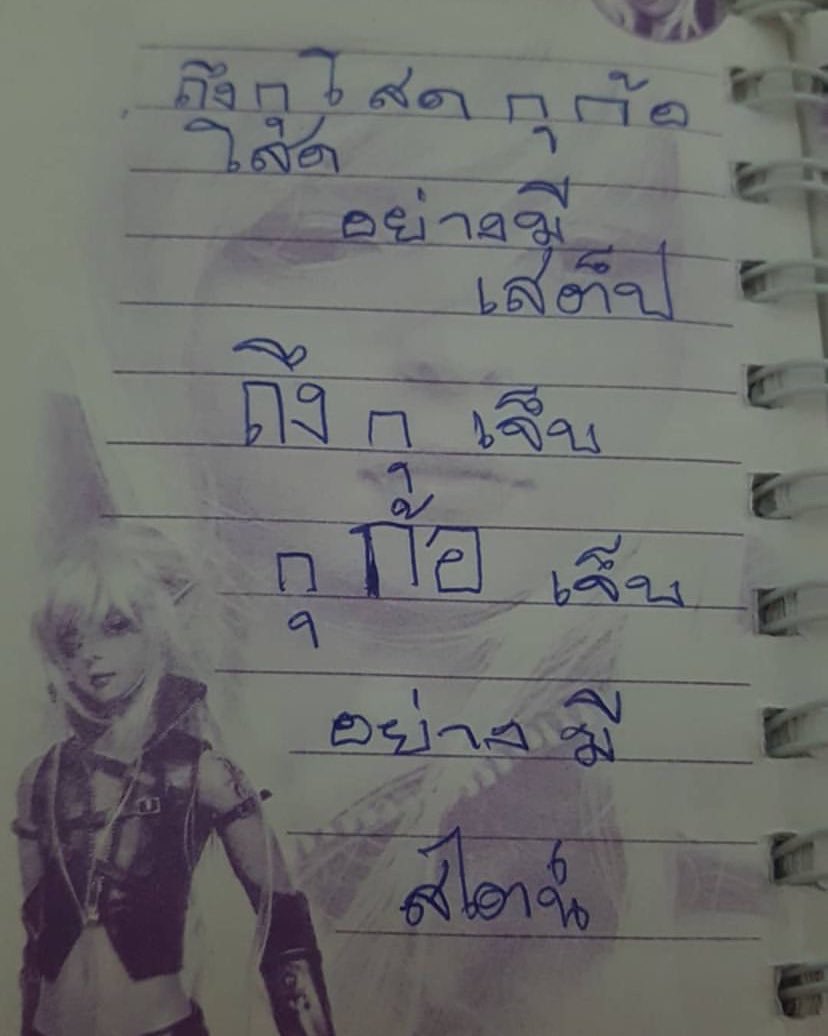 ถึงกุโสดกุก้อ
โส้ด
อย่างมี
เสต็ป
ถึงกุเจ็บ
กุก้อเจ็บ
อย่างมี
สไตน์